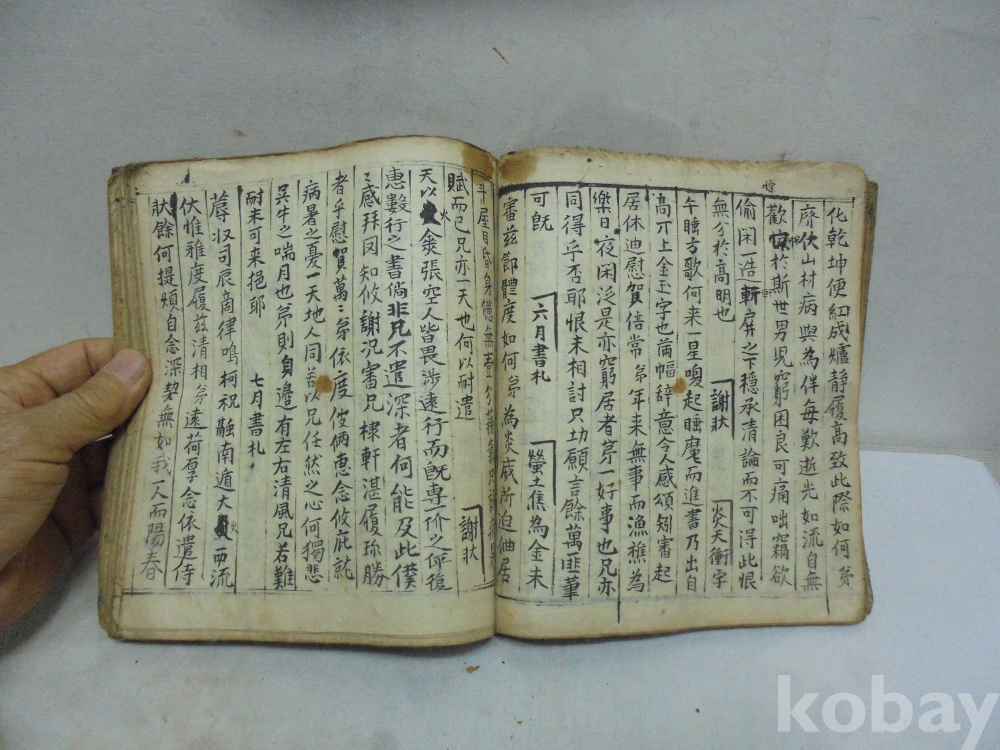 化乾坤便紅成爐靜履高致此際如何弟
齊伏山村病與為伴每歎逝光如流自無
歡悰於斯世男兒窮困良可痛咄竊欲
偷閑一造軒屛之下穩承清論而不可得此恨
無分於高明也 謝狀 炎天衡宇
午睡方歌何来一星嗄起睡魔而進書乃出自
高丌上金玉字也菛幅辞意令人感頌矧審
起居休迪慰賀倍常弟年来無事而漁樵為
樂日夜闲泛是亦窮居者第一好事也兄亦
同得乎否耶恨未相討只功願言餘萬匪菫
可旣 六月書札 螢土焦為金未
審茲卽體度如何弟為炎威所迫伷居
斗屋
賦而已兄亦一天也何以耐遣 謝狀
天以火傘張空人皆畏涉遠行而旣專价之俾復
惠數行之書倘非兄不遺深者何能及此僕
〻感拜因知攸謝況審兄棣軒湛履珎勝
者乎慰賀萬〻弟依度伎倆惠念攸庇就
病暑之憂一天地人同苦以兄任然之心何獨悲
吳牛之喘月也弟則自邊有左右清風兄若難
耐未可来挹耶 七月書札
蓐收司辰商律鳴柯祝融南遁大火西流
伏惟雅度履茲清相弟遠荷厚念依遣侍
狀餘何提煩自念深契無如我人而陽春
kobay